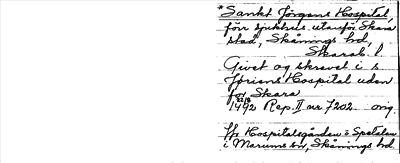 *Sankt Jörgens Hospital,
förr sjukhus utanför Skara
stad, Skånings hd,
Skarab. l
Givet og skrevet i s
Jøriens Hospital uden
for Skara
1492 22/8 Rep. II nr 7202. orig.
t/g Hospitalsgården o Spetalen
i Marums sn, Skånings hd